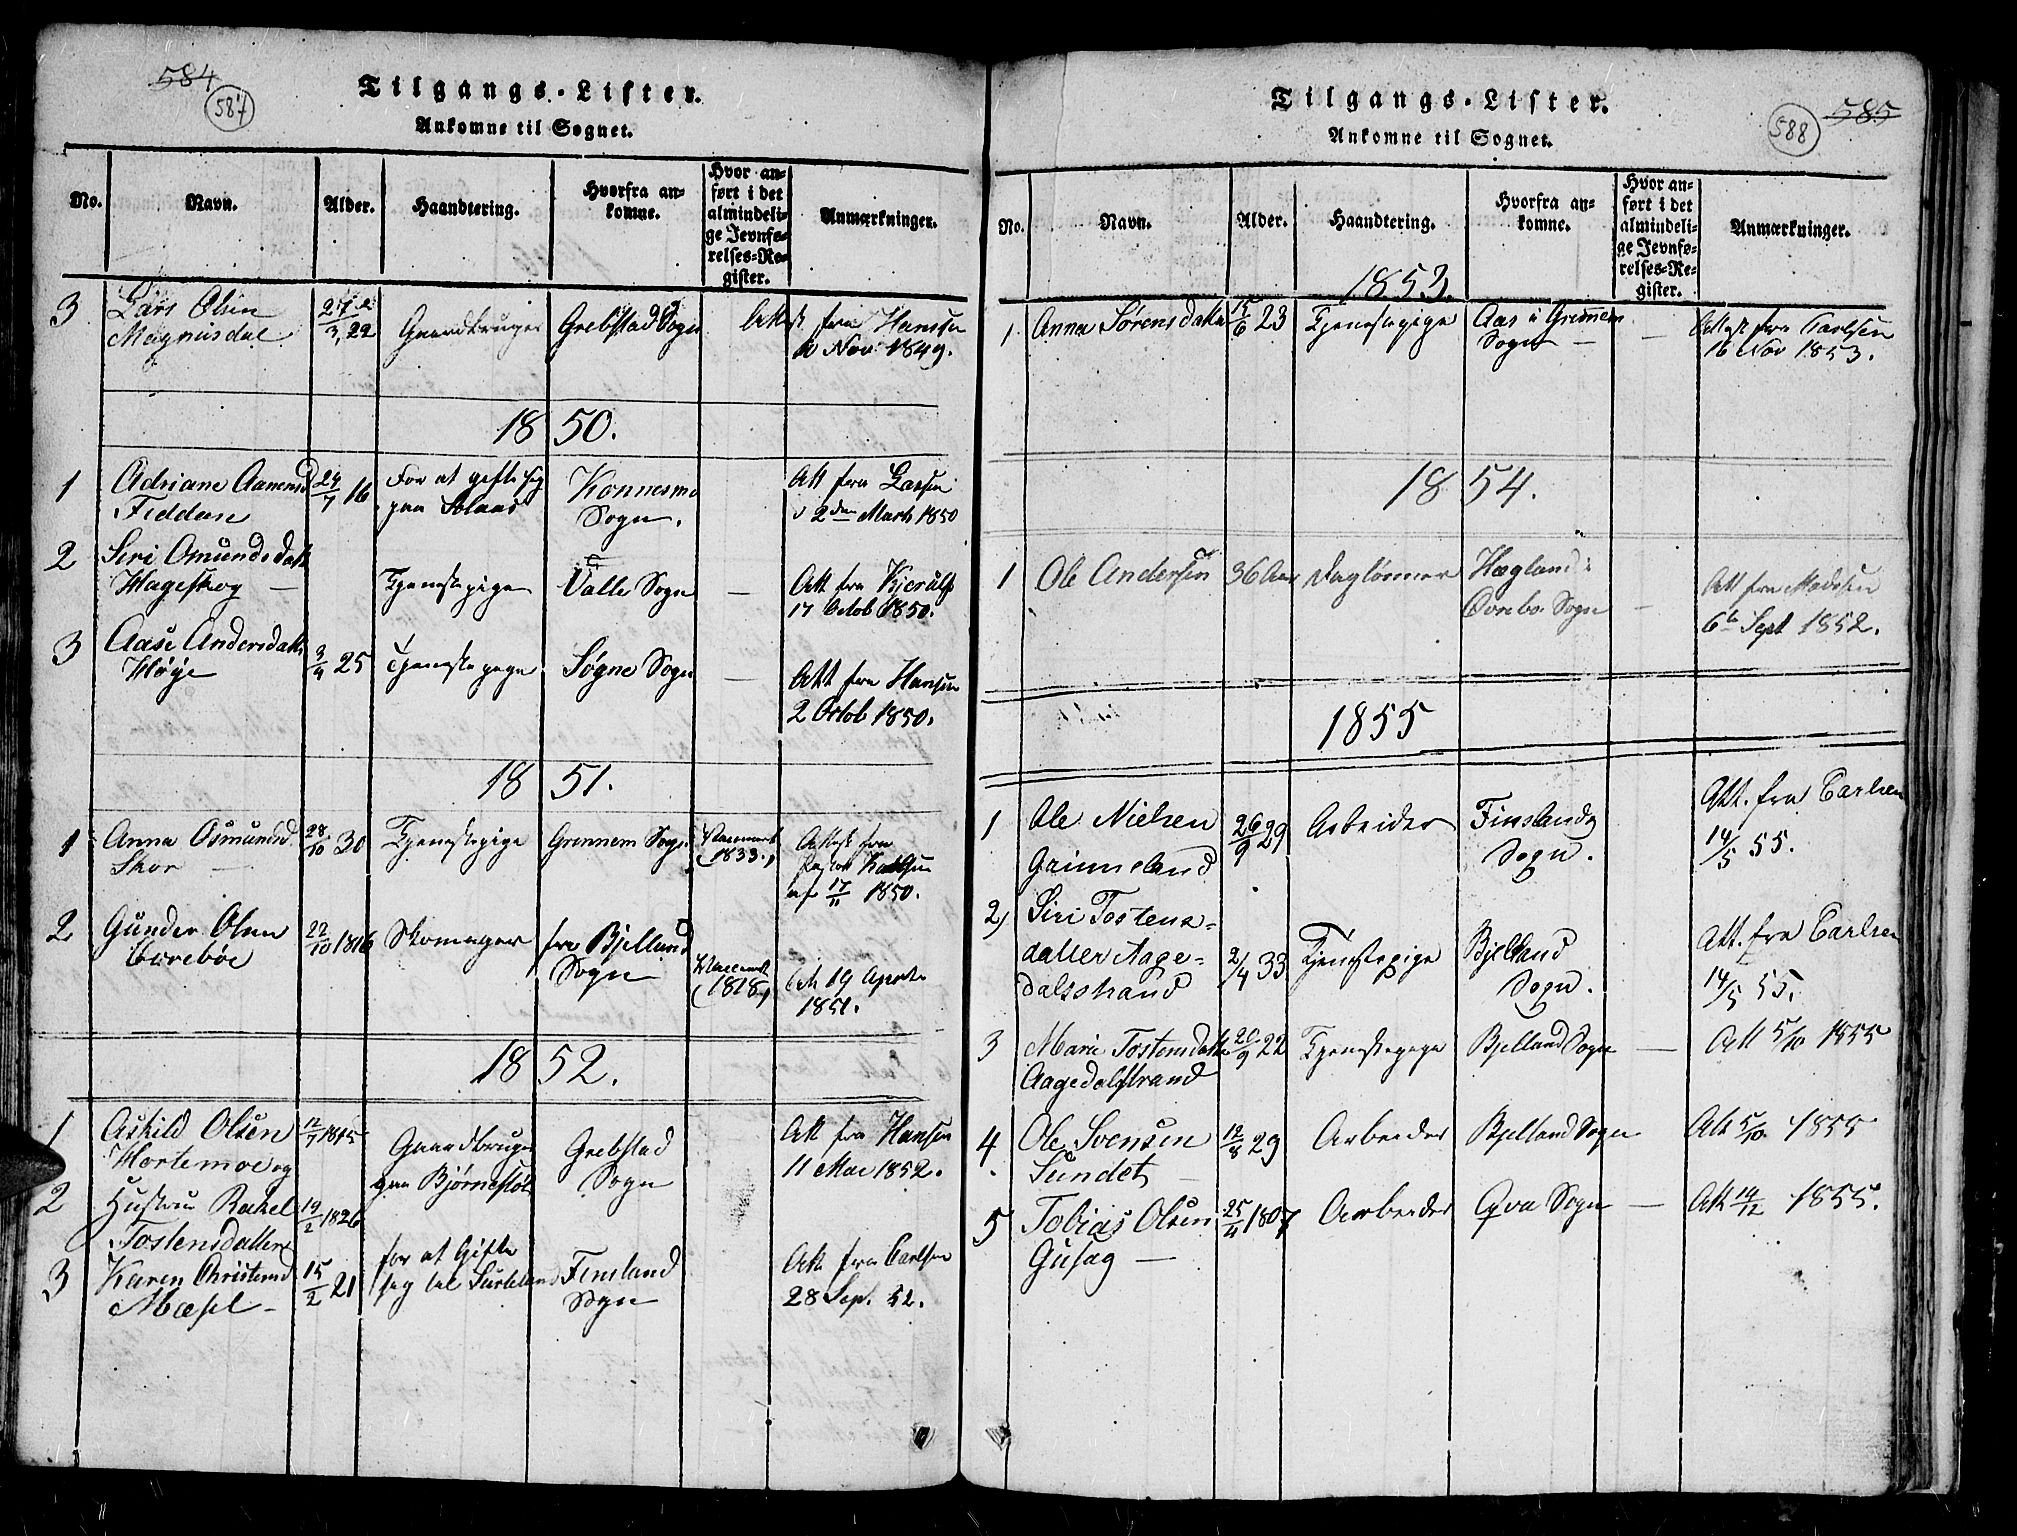 584
587
Tilgangs-Lister.
Ankomne til Sognet.
No.
Navn.
Alder.
Haandtering.
Hvorfra an-
komne.
Hvor an-
ført i det
almindeli-
ge Jevnfø-
relses-Re-
gister.
Anmærkninger.
3
Lars Olsen
Magnusdal
3, 22
Gaardbruger
Grebstad Sogn
Attest fra Hansen
10 Nov: 1849.
1850.
1
Adriane Aanensd
Feddan
24/7 16
For at gifte seg
paa
Konnesmo
Sogn.
Att fra Larsen
2den Marts 1850
2
Siri Omundsdatt
Hageskog —
Tjenestepige
Valle Sogn
—
Att fra Kjerulf
17 Octob 1850.
3
Aase Andersdatt
Høye
3/4 25
Tjenestepige
Søgne Sogn
—
Att fra Hansen
2 Octob 1850.
1851.
1
Anna Osmundsd
Skor —
28/10 30
Tjenestepige
Grennem Sogn
(1833.)
Attest fra
Pastor
af 17/11 1850.
2
Gunder Olsen
22/10 1816
Skomager
fra Bjelland
Sogn
(1818.)
Att 19
1851.
1852.
1
Askild Olsen
Hortemoe og
12/7 1815
Gaardbruger
paa Bjørnestøl
Grebstad
Sogn
Att fra Hansen
11 Mai 1852.
2
Hustru Rakel
Tostensdatter
19/2 1826
3
Karen Christensd
Mæsel —
15/2 21
for at Gifte
seg til
Finsland
Sogn
Att fra Carlsen
28 Sep. 52.
585
588
Tilgangs-Lister.
Ankomne til Sognet.
No.
Navn.
Alder.
Haandtering.
Hvorfra an-
komne.
Hvor an-
ført i det
almindeli-
ge Jevnfø-
relses-Re-
gister.
Anmærkninger.
1853.
1
Anna Sørensdatter
15/6 23
Tjenestepige
Aas i Grennem
Sogn —
—
Attest fra Carlsen
16 Nov 1853.
1854.
1
Ole Andersen
36 Aar
Daglønner
Hægland i
Øvrebø Sogn
—
Att fra Madssen
6te Sept 1852.
1855
1
Ole Nielsen
Grimeland
26/9 29
Arbeider
Finslands
Sogn.
Att. fra Carlsen
14/5 55.
2)
Siri Tostens-
datter Aage-
dalsstrand
2/4 33
Tjenestepige
Bjelland
Sogn.
Att. fra Carlsen
14/5 55.
3
Marie Tostensdatter
Aagedalstrand
20/9 22
Tjenestepige
Bjelland Sogn
—
Att 5/10 1855
4
Ole Svensen
Sundet
12/8 29
Arbeider
Bjelland Sogn
Att 5/10 1855
5
Tobias Olsen
Gusag —
25/4 1807
Arbeider
Qva Sogn
—
Att 14/12 1855.